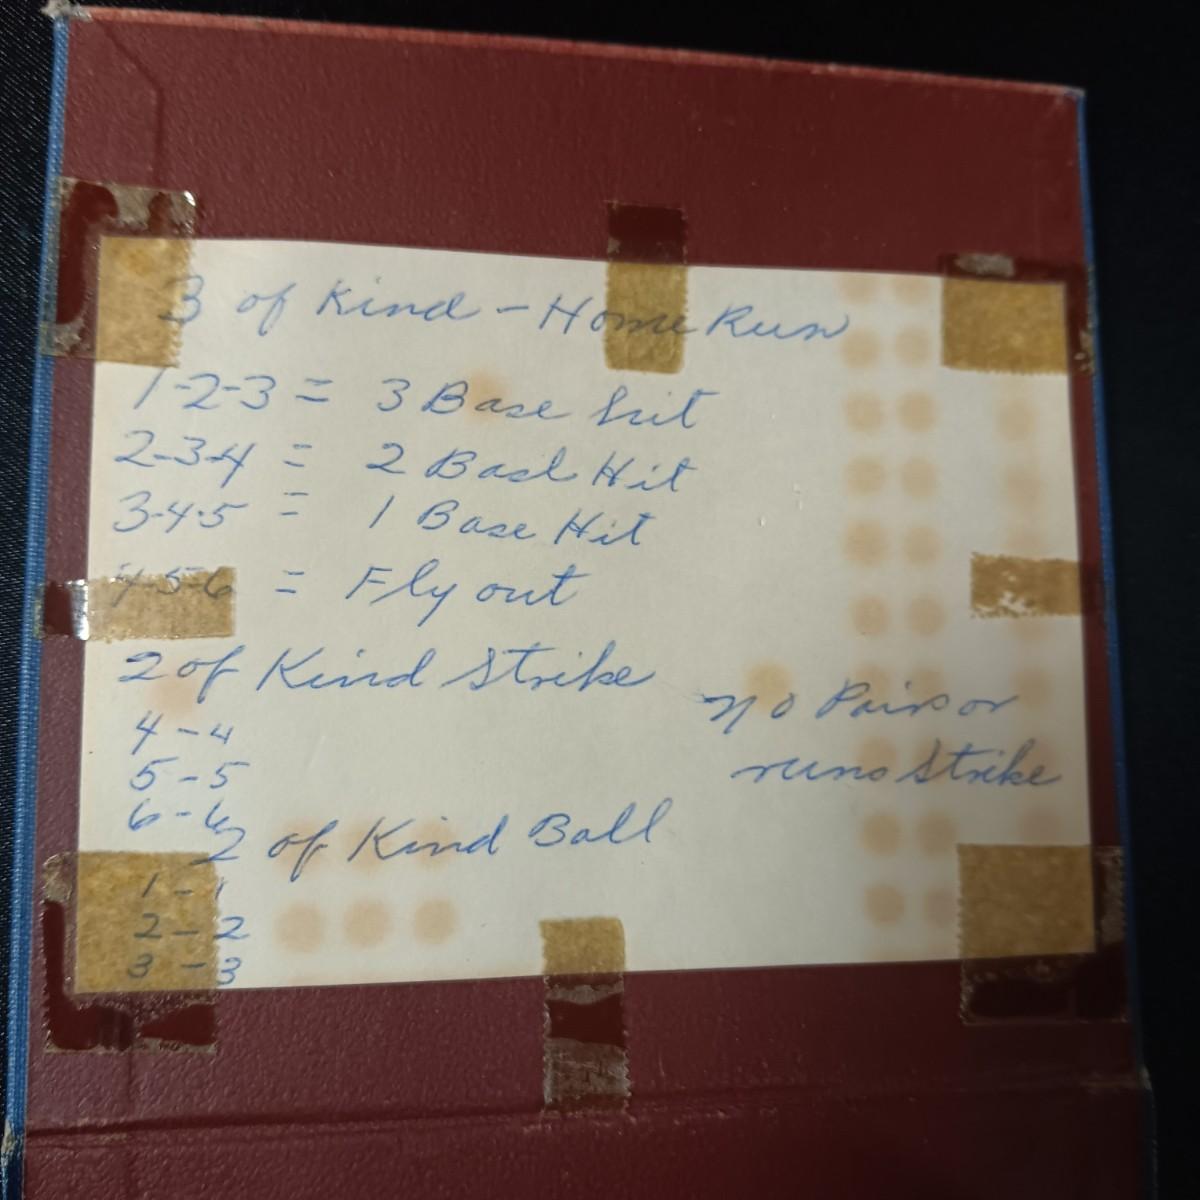 3 of Kind - Home Run
1-2-3 = 3 Base hit
2-3-4 = 2 Base Hit
3-4-5 = 1 Base Hit
4-5-6 = Fly out
2 of Kind Strike
4 - 4
5 - 5
6 - 6
no Pairs or
runs Strike
2 of Kind Ball
1 - 1
2 - 2
3 - 3